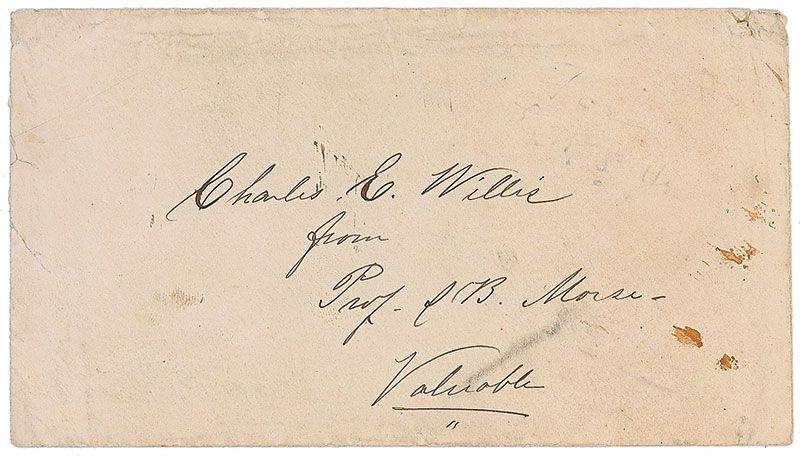 Charles. E. Willis
from
Prof. S B. Morse -
Valuable
"